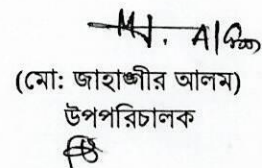 (মো: জাহাঙ্গীর আলম)
উপপরিচালক